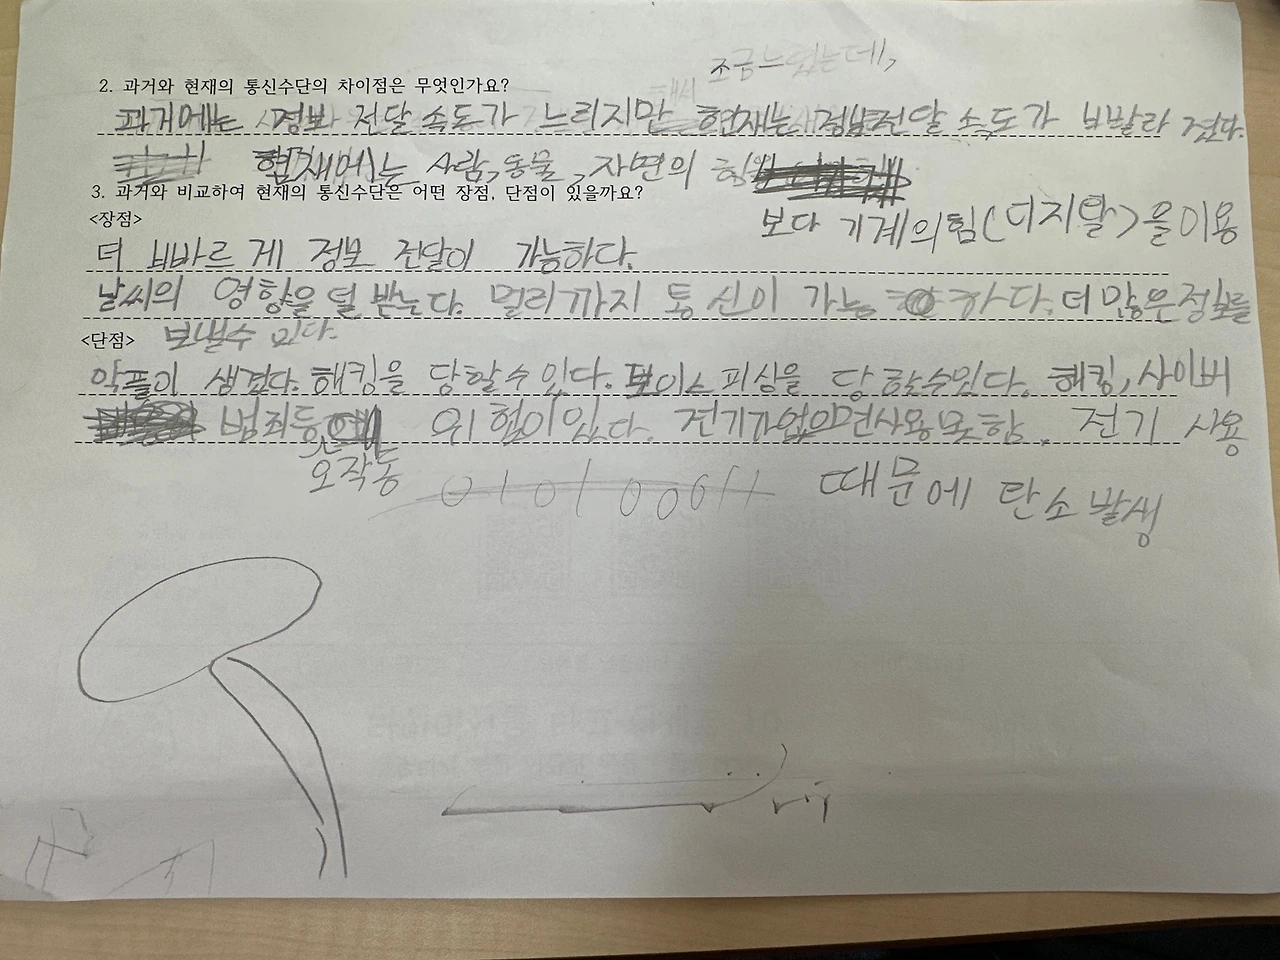 조금느렸는데,
2. 과거와 현재의 통신수단의 차이점은 무엇인가요?
과거에는 정보 전달 속도가 느리지만 현재는 정보전달 속도가 빠발라 졌다.
현재에는 사람, 동물, 자연의 힘
3. 과거와 비교하여 현재의 통신수단은 어떤 장점, 단점이 있을까요?
보다 기계의힘(디지탈)을이용
<장점>
더 빠바르게 정보 전달이 가능하다.
날씨의 영향을 덜 받는다. 멀리까지 통신이 가능 하다. 더 많은정보를
보낼수 있다.
<단점>
악플이 생겼다. 해킹을 당할수있다. 보이스피싱을 당할수있다. 해킹, 사이버
범죄등 위험이있다. 전기가없으면사용못함. 전기 사용
오작동
때문에 탄소발생